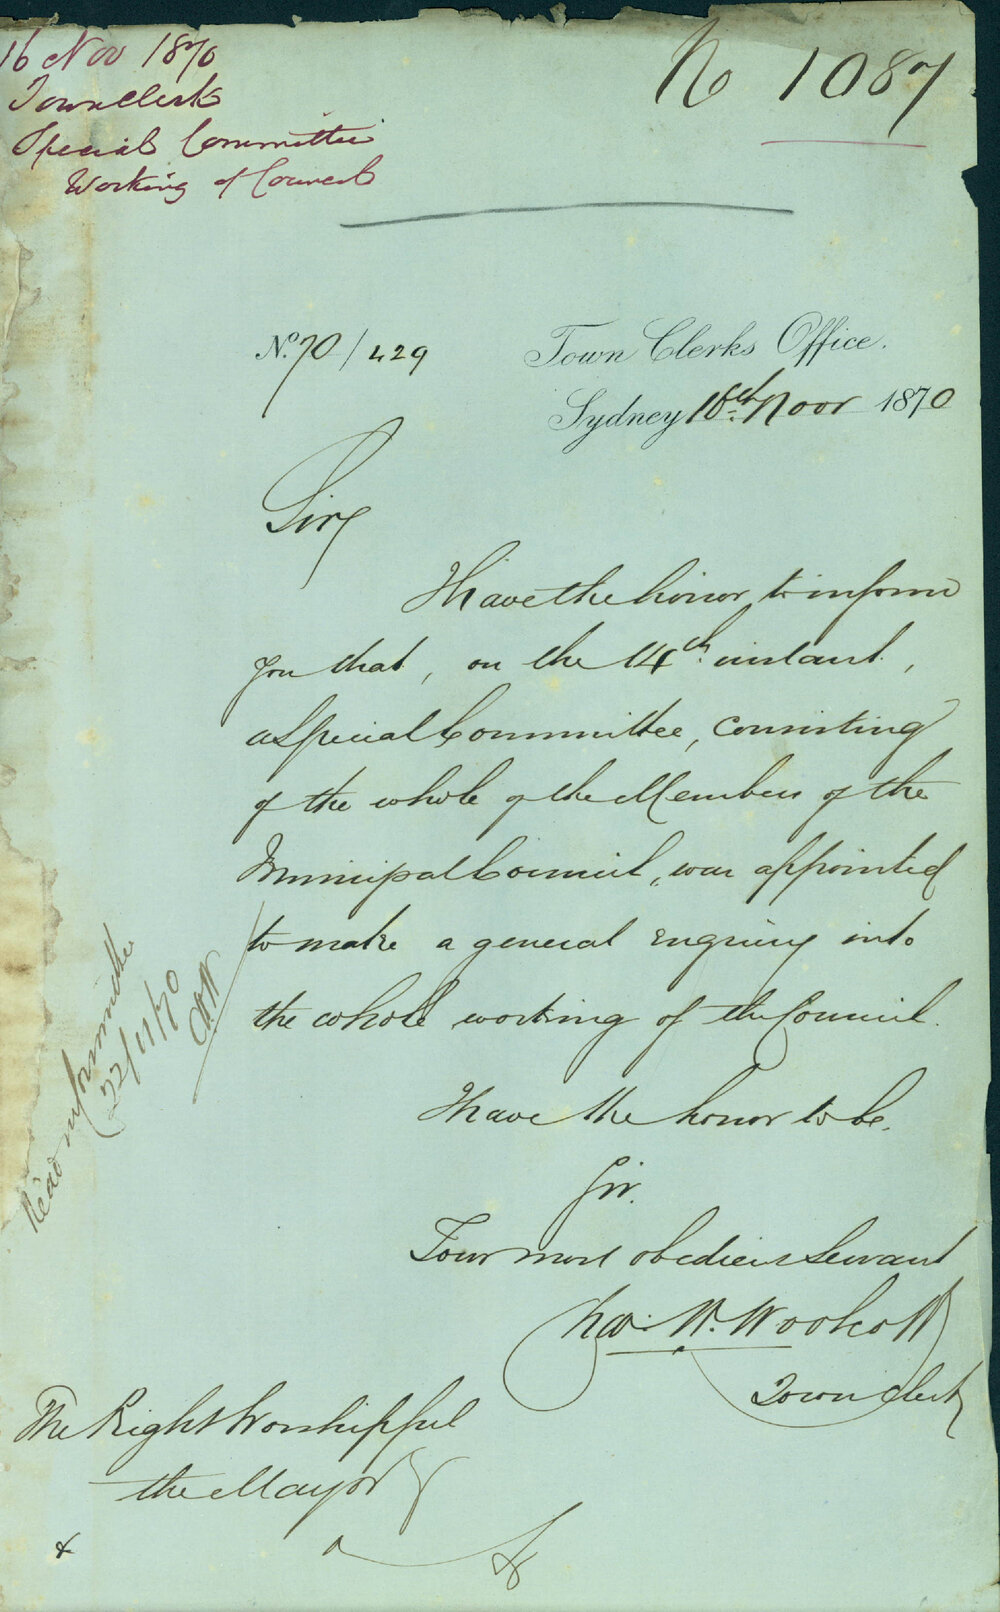 16 Nov 1870
Town Clerk
Special Committee
Working of Council
No 1087
No. 70/429
Town Clerks Office.
Sydney 16th Novr 1870
Sir
I have the honor to inform
you that, on the 14th instant,
a Special Committee, consisting
of the whole of the Members of the
Municipal Council, was appointed
to make a general enquiry into
the whole working of the Council.
I have the honor to be.
Sir.
Your most obedient Servant
Chas. H. Woolcott
Town Clerk
The Right Worshipful
the Mayor
&c
Read in Committee
22/11/70
CHW